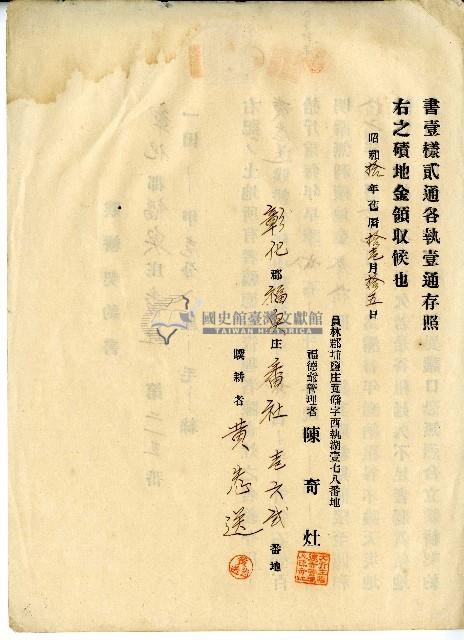 書壹樣貳通各執壹通存照
右之磧地金領收候也
昭和拾年舊曆拾壱月拾五日
員林郡埔鹽庄瓦磘字西勢湖壹七八番地
福德爺管理者 陳奇灶
彰化郡福興庄番社壱六貳番地
贌耕者 黃 送
國史館臺灣文獻館
TAIWAN HISTORICA